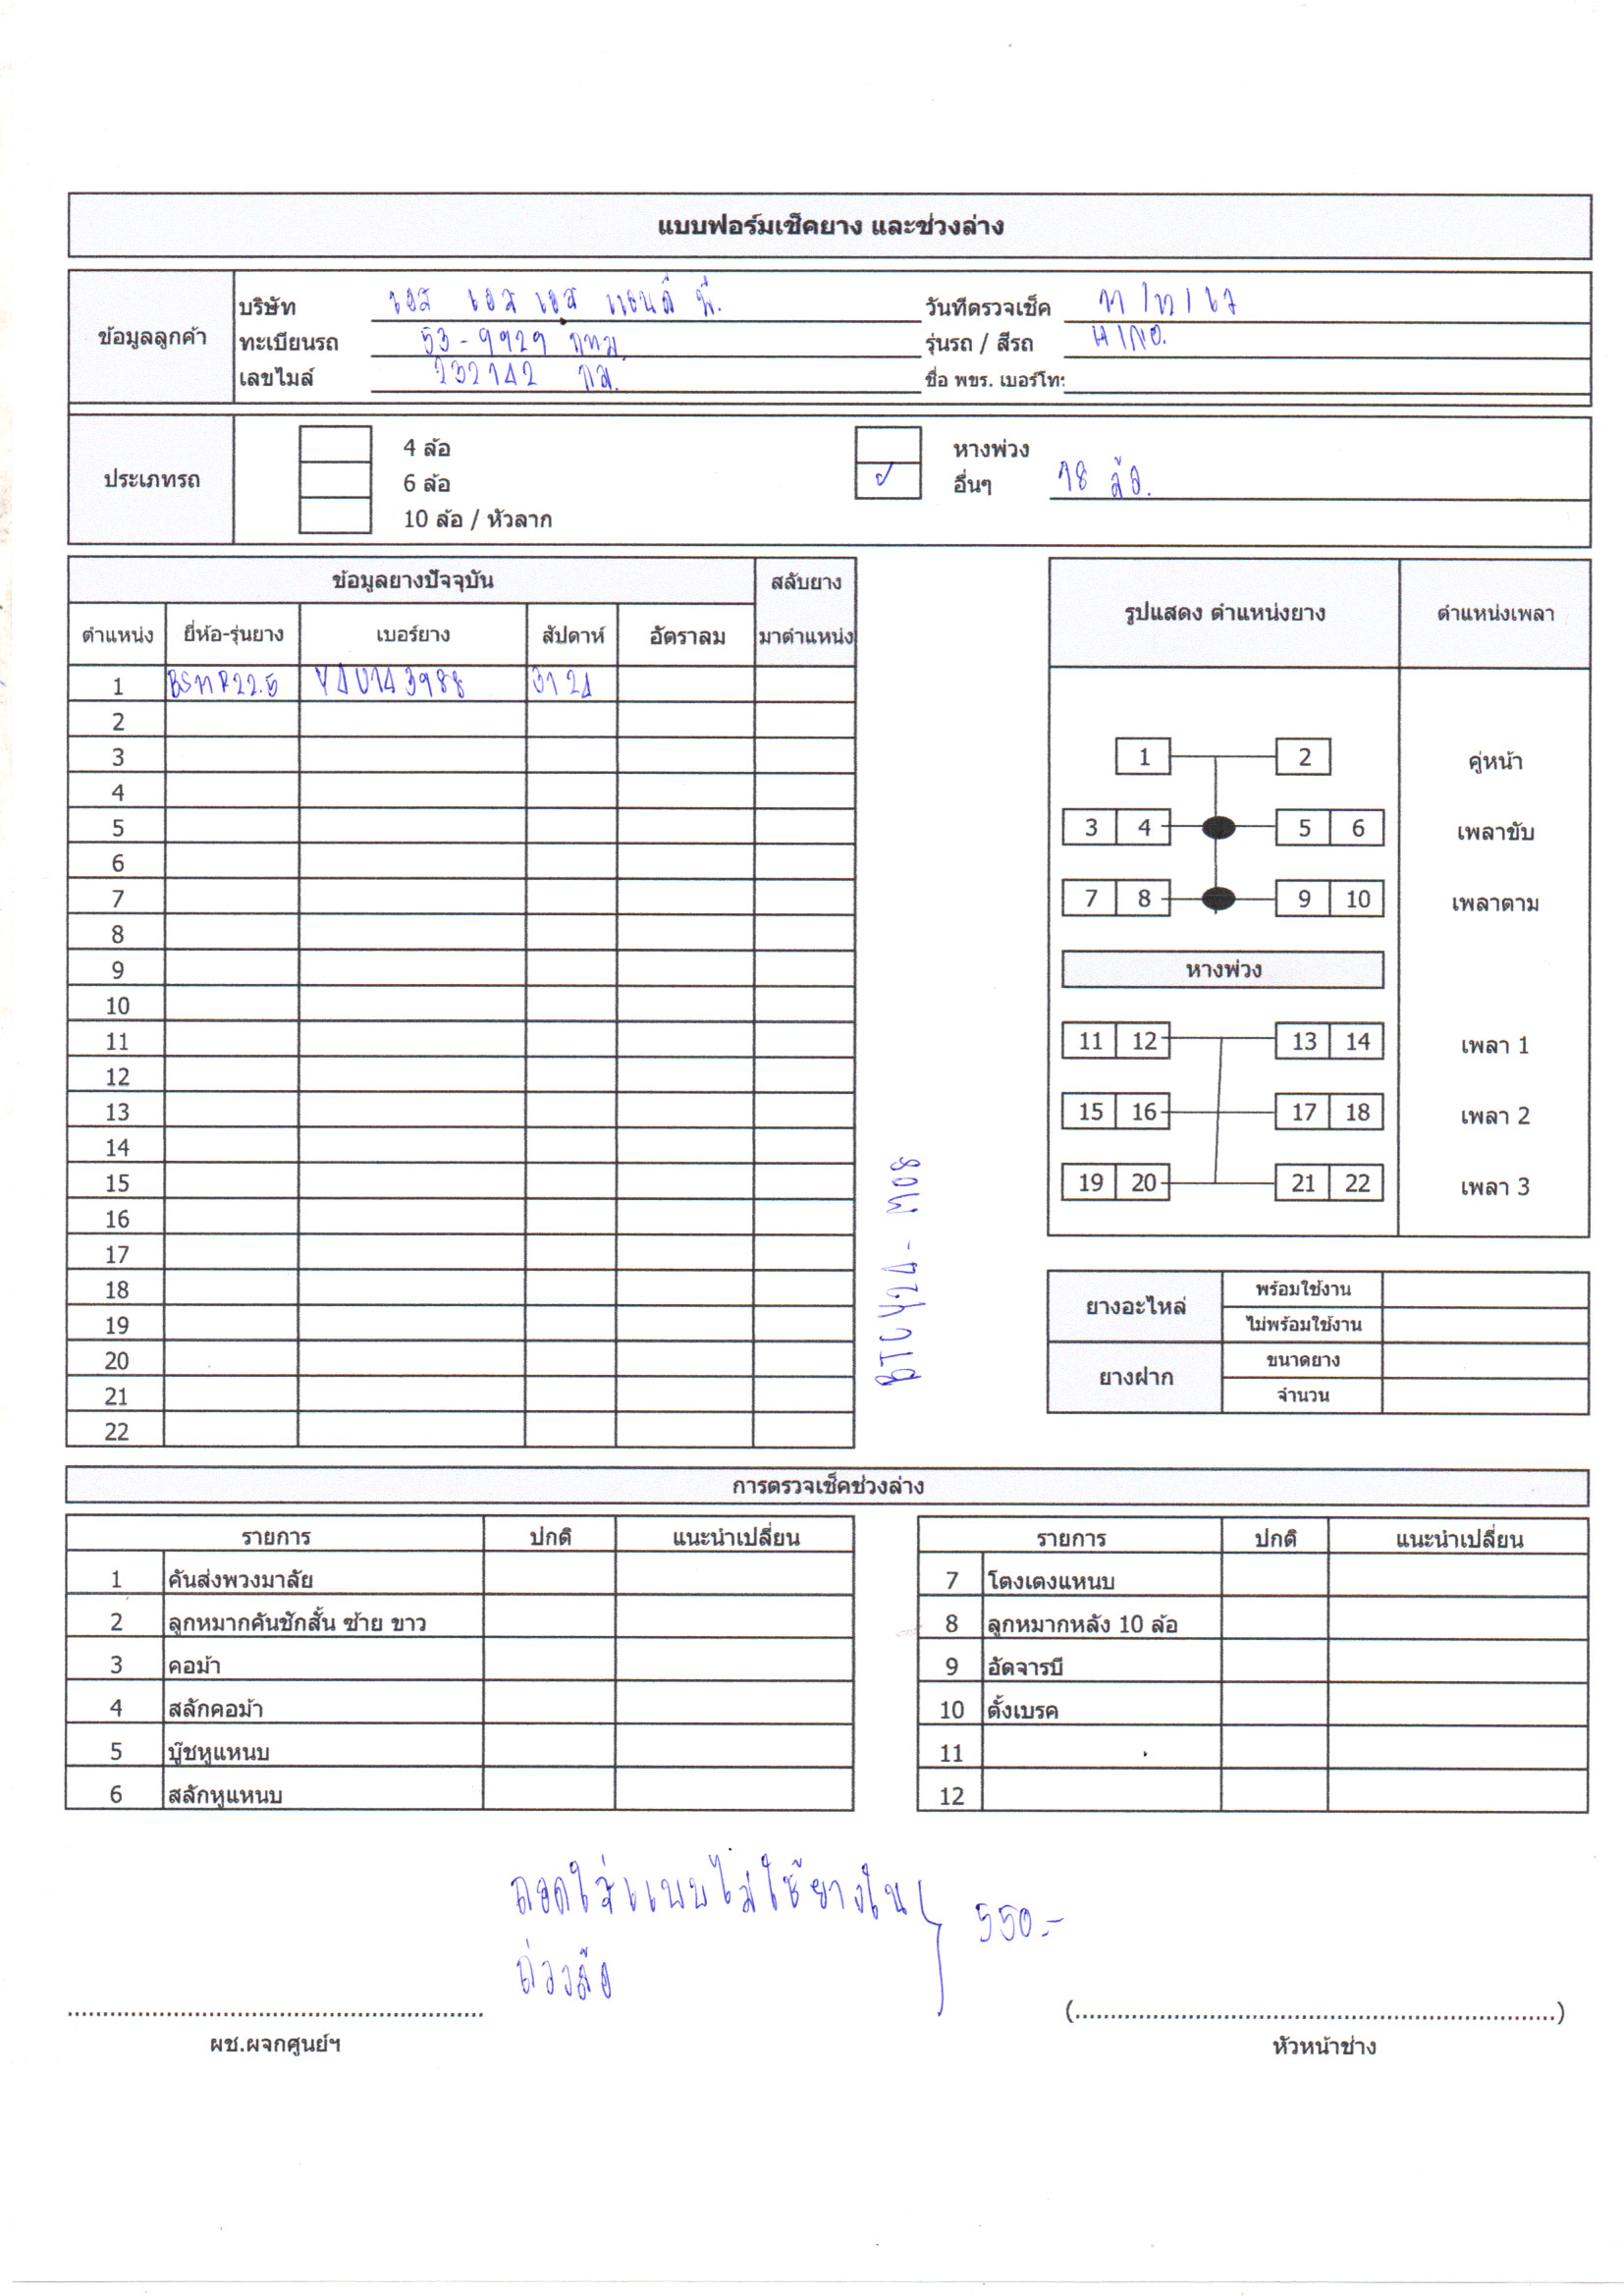 แบบฟอร์มเช็คยาง และช่วงล่าง
ข้อมูลลูกค้า
บริษัท เอส เอส เอส แอนด์ พี.
วันที่ตรวจเช็ค 11/12/67
ทะเบียนรถ 53-9929 กทม.
รุ่นรถ / สีรถ HINO.
เลขไมล์ 232142 กม.
ชื่อ พขร. เบอร์โท:
ประเภทรถ
4 ล้อ
6 ล้อ
10 ล้อ / หัวลาก
หางพ่วง
✓ อื่นๆ 18 ล้อ.
ข้อมูลยางปัจจุบัน สลับยาง
ตำแหน่ง ยี่ห้อ-รุ่นยาง เบอร์ยาง สัปดาห์ อัตราลม มาตำแหน่ง
1 BS11R22.5 Y4U143988 3124
2
3
4
5
6
7
8
9
10
11
12
13
14
15
16
17
18
19
20
21
22
รูปแสดง ตำแหน่งยาง ตำแหน่งเพลา
1 2 คู่หน้า
3 4 5 6 เพลาขับ
7 8 9 10 เพลาตาม
หางพ่วง
11 12 13 14 เพลา 1
15 16 17 18 เพลา 2
19 20 21 22 เพลา 3
ยางอะไหล่ พร้อมใช้งาน
ไม่พร้อมใช้งาน
ยางฝาก ขนาดยาง
จำนวน
การตรวจเช็คช่วงล่าง
รายการ ปกติ แนะนำเปลี่ยน
1 คันส่งพวงมาลัย
2 ลูกหมากคันชักสั้น ซ้าย ขาว
3 คอม้า
4 สลักคอม้า
5 บู๊ชหูแหนบ
6 สลักหูแหนบ
รายการ ปกติ แนะนำเปลี่ยน
7 โตงเตงแหนบ
8 ลูกหมากหลัง 10 ล้อ
9 อัดจารบี
10 ตั้งเบรค
11
12
ถอดใส่แบบไม่ใช้ยางใน
ถ่วงล้อ
550.-
ผช.ผจกศูนย์ฯ
(..........)
หัวหน้าช่าง